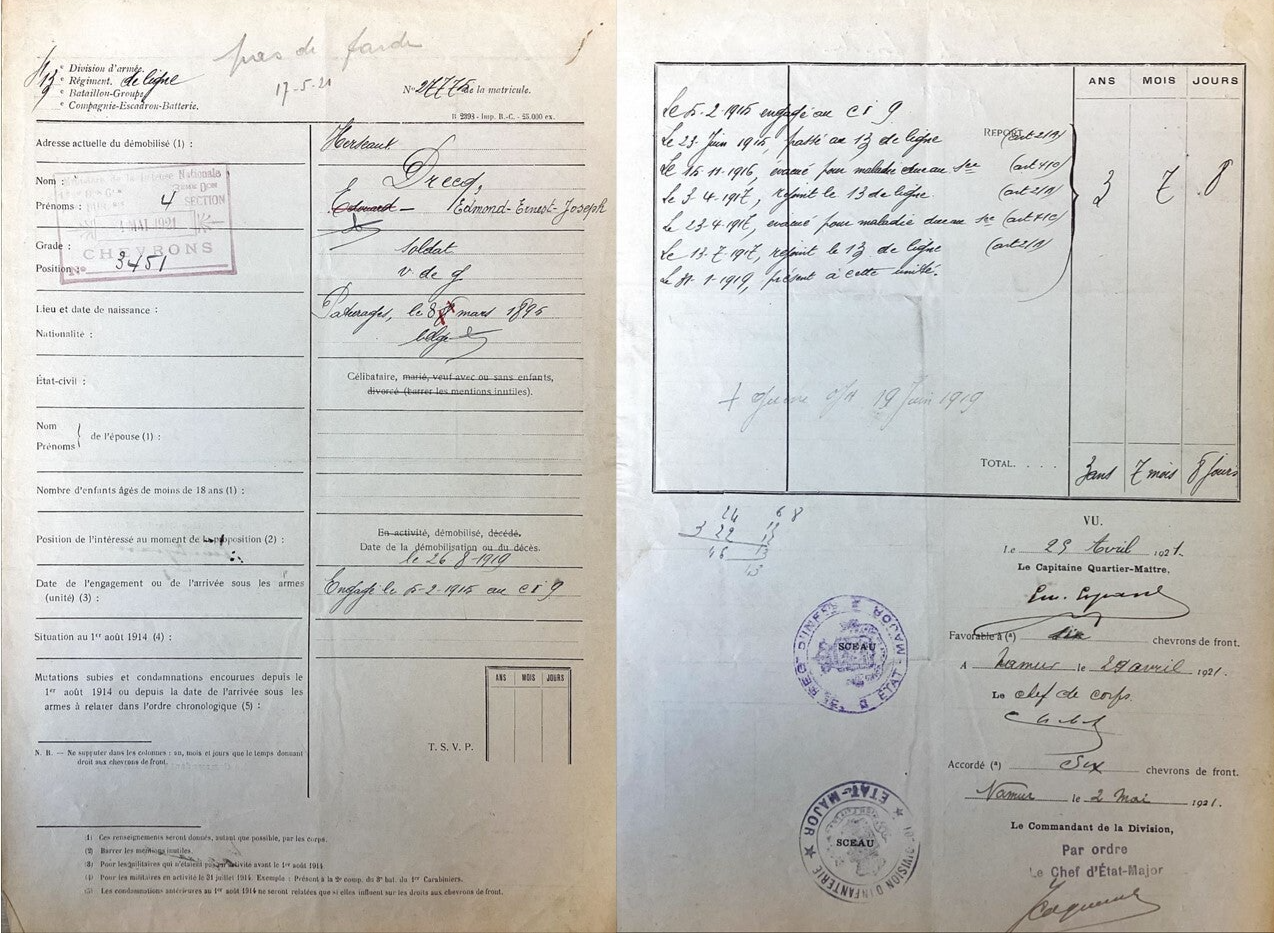 pas de
17-5-21
13 e Division d'armée.
e Régiment. de ligne
9 e Bataillon-Groupe
e Compagnie-Escadron-Batterie.
No 27775 de la matricule.
B 2393 - Imp. B.-C. - 25.000 ex.
Adresse actuelle du démobilisé (1) :
Herseaut
Nom
Dreeq,
Prénoms :
Edouard — Edmond-Ernest-Joseph
Nationale
SECTION
4
1 MAI 1921
CHEVRONS
No 3451
Grade :
soldat
Position
v de g
Lieu et date de naissance :
Paturages, le 8 mars 1895
Nationalité :
belge
État-civil :
Célibataire, marié, veuf avec ou sans enfants,
divorcé (barrer les mentions inutiles).
Nom
Prénoms
de l'épouse (1) :
Nombre d'enfants âgés de moins de 18 ans (1) :
Position de l'intéressé au moment de la proposition (2) :
En activité, démobilisé, décédé.
Date de la démobilisation ou du décès.
le 26-8-1919
Date de l'engagement ou de l'arrivée sous les armes
(unité) (3) :
Engagé le 5-2-1915 au c i 9
Situation au 1er août 1914 (4) :
Mutations subies et condamnations encourues depuis le
1er août 1914 ou depuis la date de l'arrivée sous les
armes à relater dans l'ordre chronologique (5) :
ANS MOIS JOURS
N. B. — Ne supputer dans les colonnes : an, mois et jours que le temps donnant
droit aux chevrons de front.
T. S. V. P.
(1) Ces renseignements seront donnés, autant que possible, par les corps.
(2) Barrer les mentions inutiles.
(3) Pour les militaires qui n'étaient pas en activité avant le 1er août 1914.
(4) Pour les militaires en activité le 31 juillet 1914. Exemple : Présent à la 2e comp. du 3e bat. du 1er Carabiniers.
(5) Les condamnations antérieures au 1er août 1914 ne seront relatées que si elles influent sur les droits aux chevrons de front.
ANS MOIS JOURS
REPORT
Le 5-2-1915 engagé au c i 9
Le 23 Juin 1915, passé au 13 de ligne (art 2/9)
Le 15-11-1916, évacué pour maladie due au sce (art 41c)
Le 3-4-1917, rejoint le 13 de ligne. (art 2/9)
Le 23-4-1917, évacué pour maladie due au sce (art 41c)
Le 13-7-1917, rejoint le 13 de ligne (art 2/9)
Le 31-1-1919, présent à cette unité.
3 7 8
19 Juin 1919
TOTAL. . . . .
3 ans 7 mois 8 jours
24 68
3 22
46 13
13
VU.
Le 29 Avril 1921.
Le Capitaine Quartier-Maître,
Favorable à (a) six chevrons de front.
A Namur le 29 avril 1921.
Le chef de corps.
ÉTAT-MAJOR
SCEAU
Accordé (a) Six chevrons de front.
Namur le 2 mai 1921.
Le Commandant de la Division,
Par ordre
Le Chef d'État-Major
ÉTAT-MAJOR
SCEAU
DIVISION D'INFANTERIE